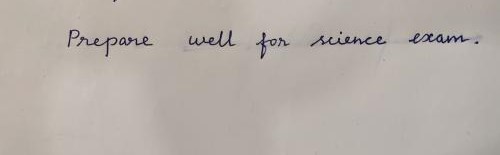 Prepare well for science exam.